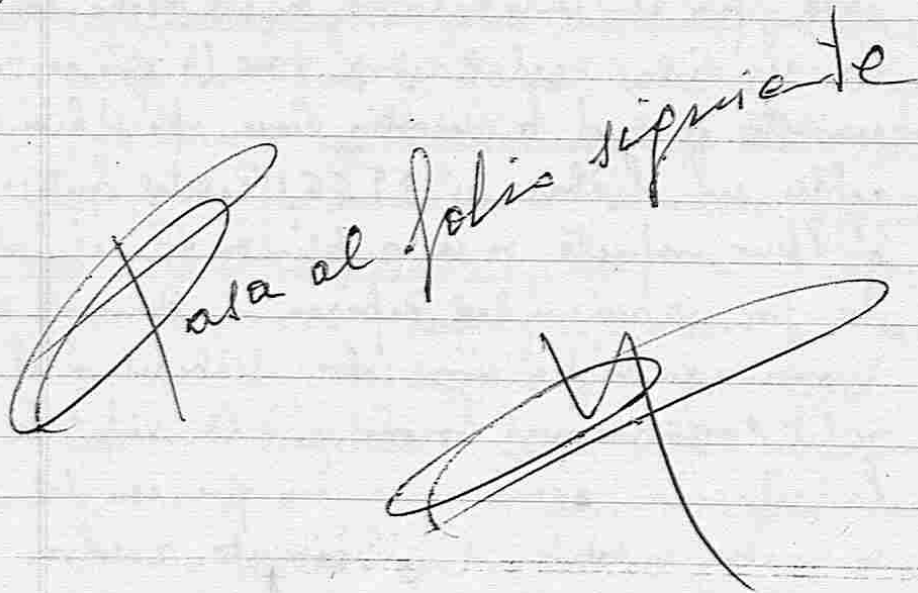 Pasa al folio siguiente